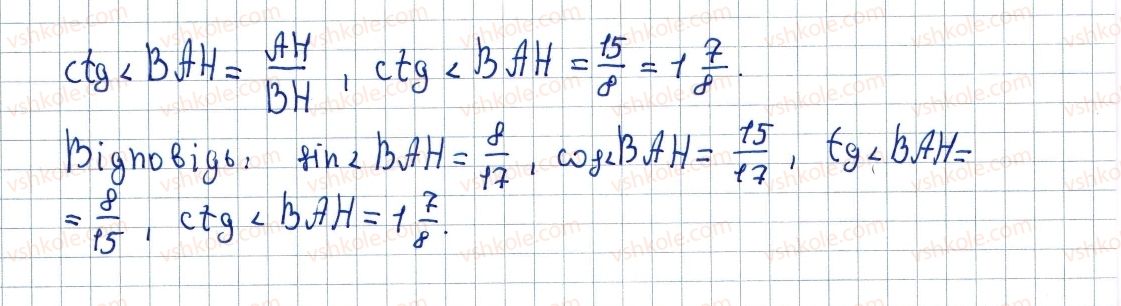 ctg < BAH = AH/BH, ctg < BAH = 15/8 = 1 7/8.
Відповідь: sin < BAH = 8/17, cos < BAH = 15/17, tg < BAH =
= 8/15, ctg < BAH = 1 7/8.